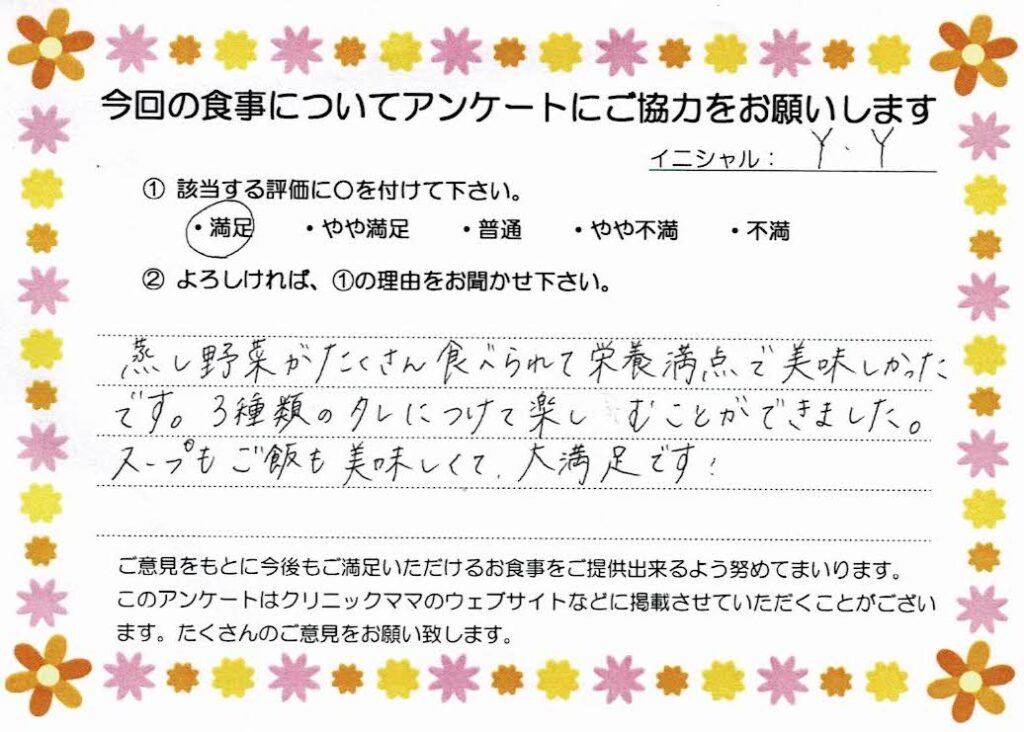 今回の食事についてアンケートにご協力をお願いします
イニシャル： Y．Y
① 該当する評価に〇を付けて下さい。
・満足 ・やや満足 ・普通 ・やや不満 ・不満
② よろしければ、①の理由をお聞かせ下さい。
蒸し野菜がたくさん食べられて栄養満点で美味しかった
です。3種類のタレにつけて楽しむことができました。
スープもご飯も美味しくて、大満足です！
ご意見をもとに今後もご満足いただけるお食事をご提供出来るよう努めてまいります。
このアンケートはクリニックママのウェブサイトなどに掲載させていただくことがござい
ます。たくさんのご意見をお願い致します。